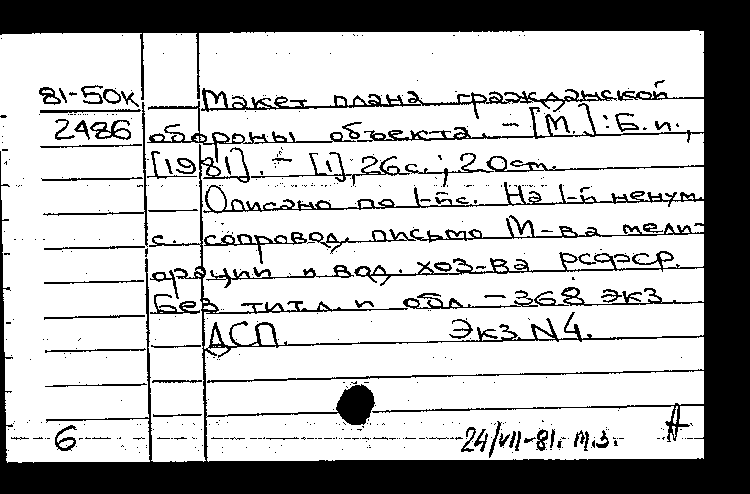 81-50к Макет плана гражданской
2486 обороны объекта. – [М.] : Б. и.,
[1981]. – [1], 26 с.; 20 см.
Описано по 1-й с. На 1-й ненум.
с. сопровод. письмо М-ва мели-
орации и вод. хоз-ва РСФСР.
Без тит. л. и обл. – 368 экз.
ДСП. Экз N4.
6 24/VII-81. т.з. А